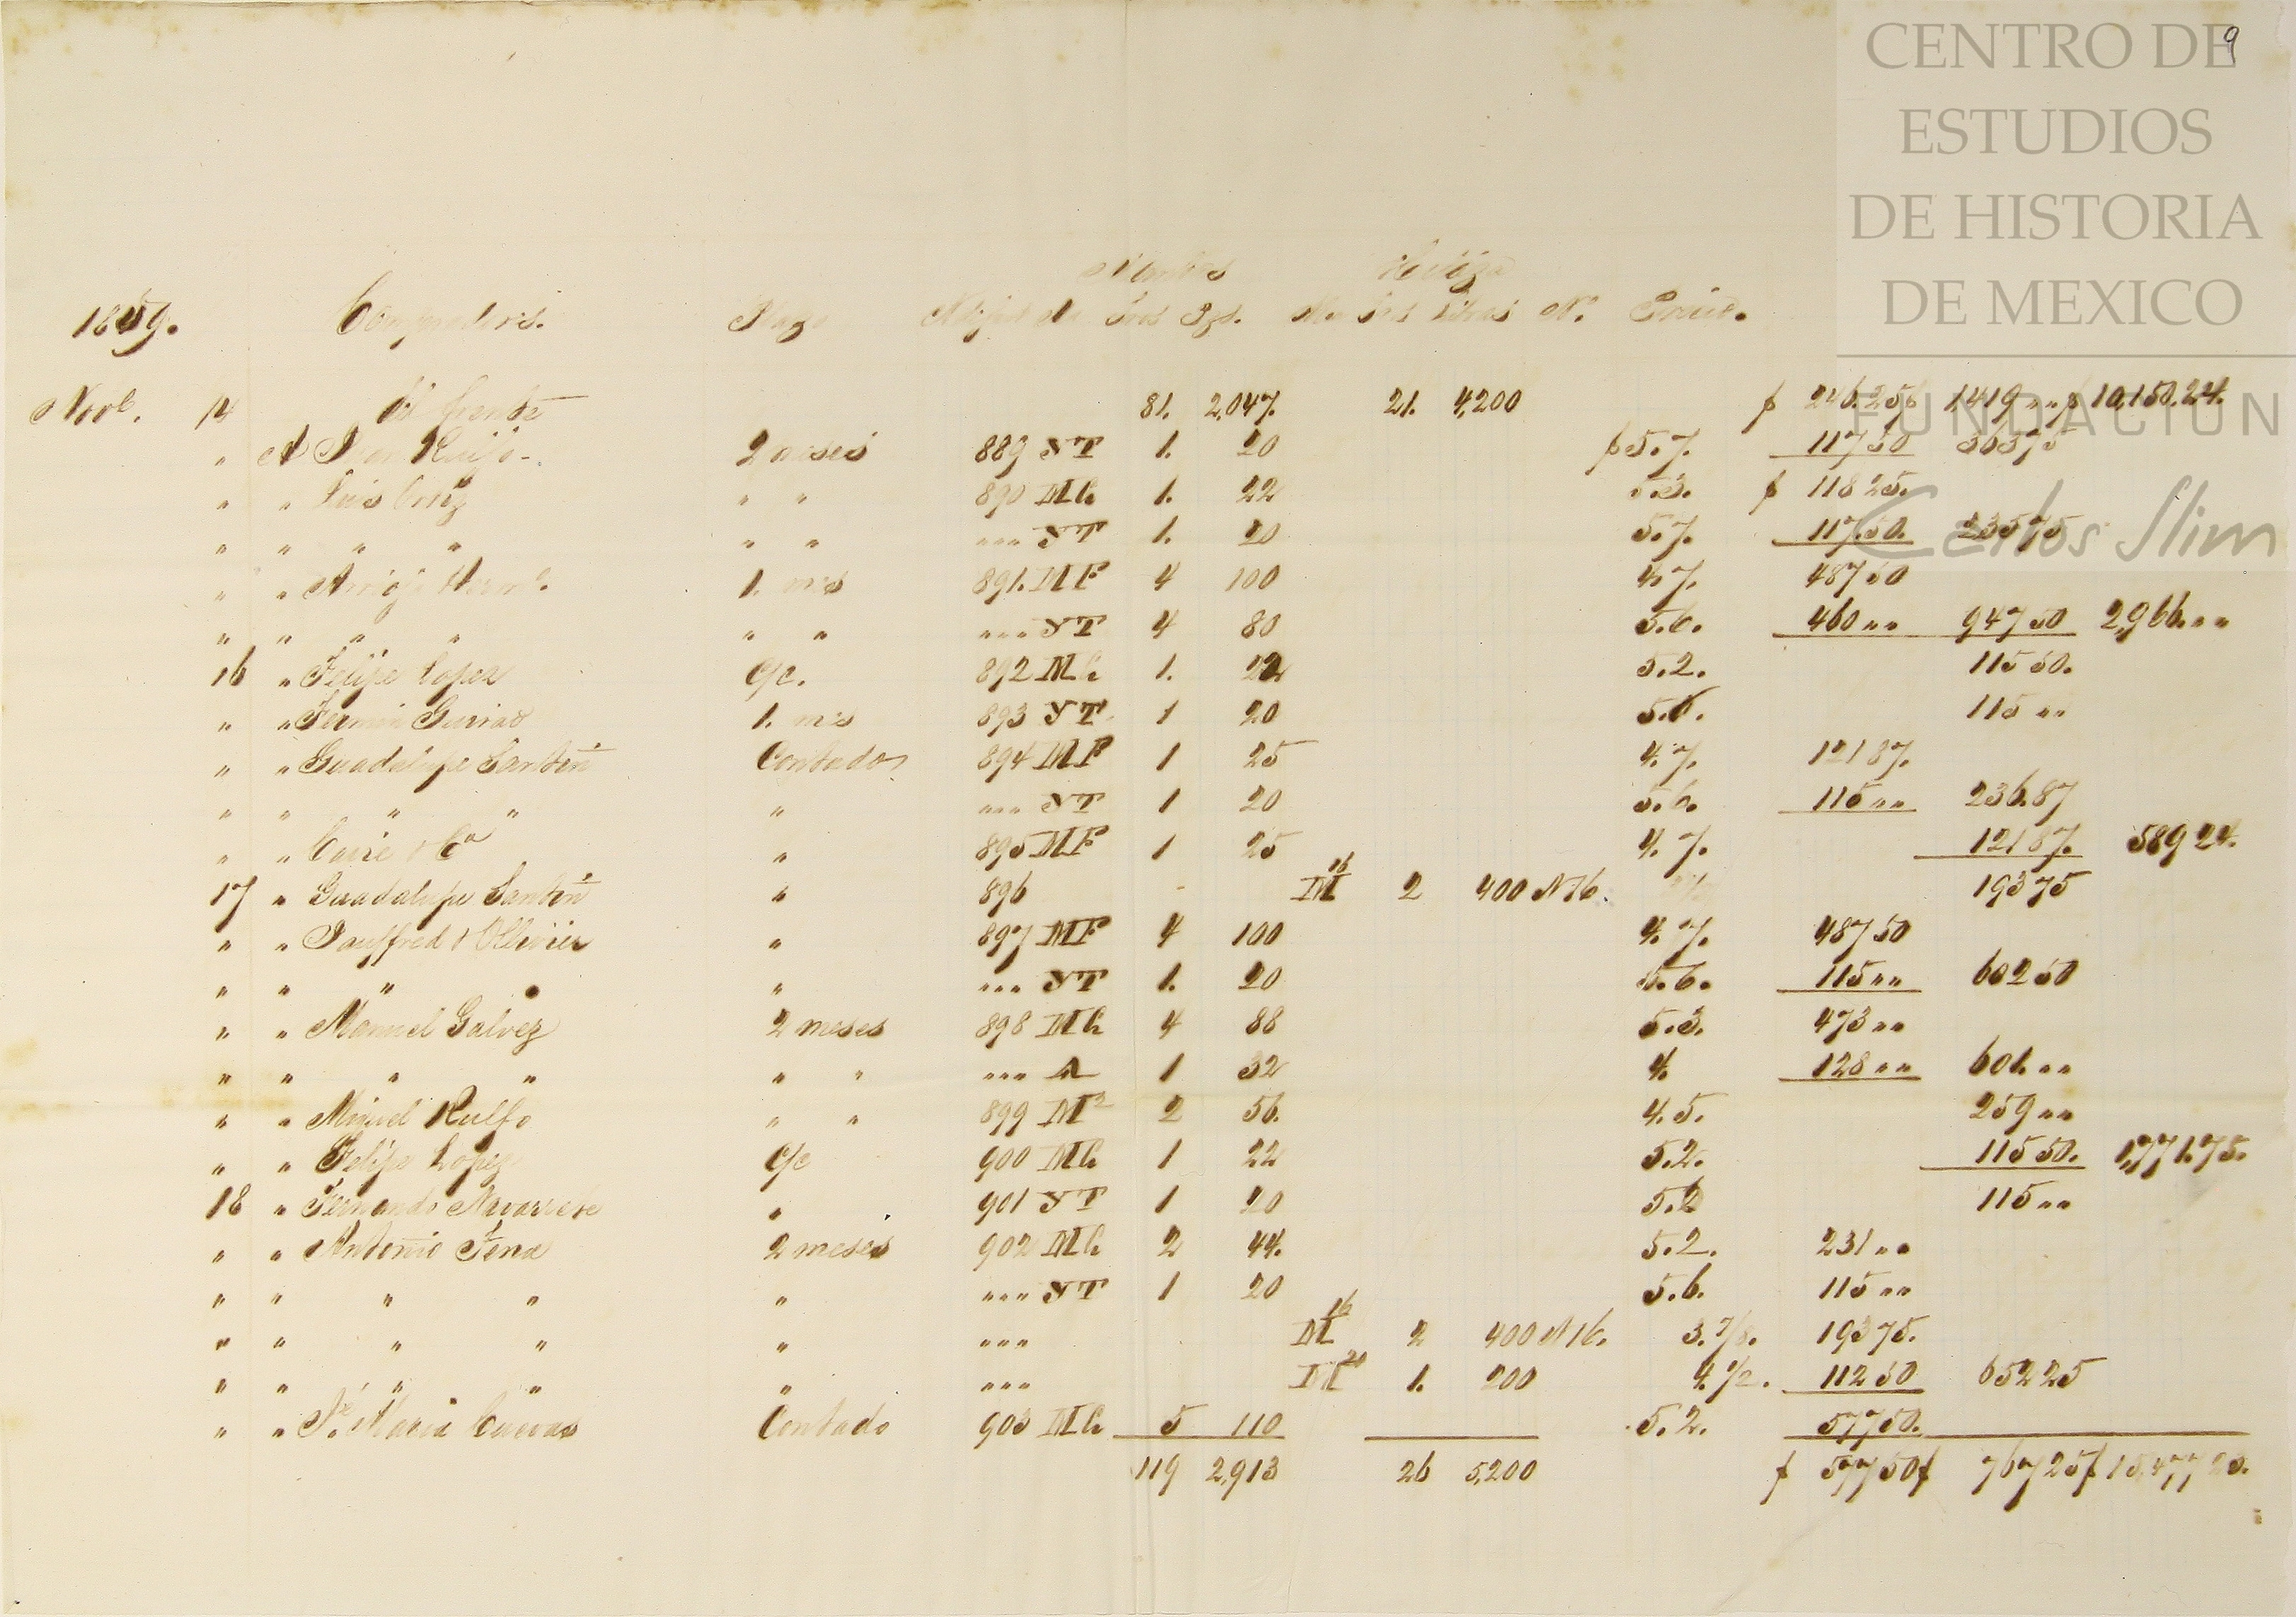 9
CENTRO DE
ESTUDIOS
DE HISTORIA
DE MEXICO
FUNDACION
Carlos Slim
Mantas Hilaza
1859. Compradores. Plazo No. Precio.
Novbe. 14 Del frente 81. 2,047. 21. 4,200 $ 246.256 1,419 " " $ 10,150.24.
" A Juan Rulfo 2 meses 889 YT 1. 20 $ 5.7. 117 50 363 75
" " Luis Cortiz " " 890 MC 1. 22 5.3. $ 118 25.
" " " " " " """ YT 1. 20 5.7. 117.50. 235 75
" " Arrioja Herms. 1. mes 891. MF 4 100 4.7. 487 50
" " " " " " """ YT 4 80 5.6. 460 " " 947 50 2,966. " "
16 " Felipe Lopez C/c. 892 MC 1. 22 5.2. 115 50.
" " Fermin 1. mes 893 YT 1 20 5.6. 115 " "
" " Guadalupe Santin Contado 894 MF 1 25 4.7. 121 87.
" " " " " """ YT 1 20 5.6. 115 " " 236.87
" " Caire & Ca " 895 MF 1 25 4.7. 121 87. 589 24.
17 " Guadalupe Santin " 896 M16 2 400 N16. 193 75
" " Jauffred & Ollivier " 897 MF 4 100 4.7. 487 50
" " " " " """ YT 1. 20 5.6. 115 " " 602 50
" " Manuel Galvez 2 meses 898 MC 4 88 5.3. 473 " "
" " " " " " """ A 1 32 4. 128 " " 601. " "
" " Miguel Rulfo " " 899 M2 2 56. 4.5. 259 " "
" " Felipe Lopez C/c 900 MC 1 22 5.2. 115 50. 1,771.75.
18 " Fernando Navarrete " 901 YT 1 20 5.6 115 " "
" " Antonio Tena 2 meses 902 MC 2 44. 5.2. 231 " "
" " " " " """ YT 1 20 5.6. 115 " "
" " " " " """ M16 2 400 N16. 3.7/8. 193 75.
" " " " " """ M20 1. 200 4.1/2. 112 50 652 25
" " Je. Maria Cuevas Contado 903 MC 5 110 5.2. 577 50.
119 2,913 26 5,200 $ 577 50 $ 767 25 $ 15,477 23.